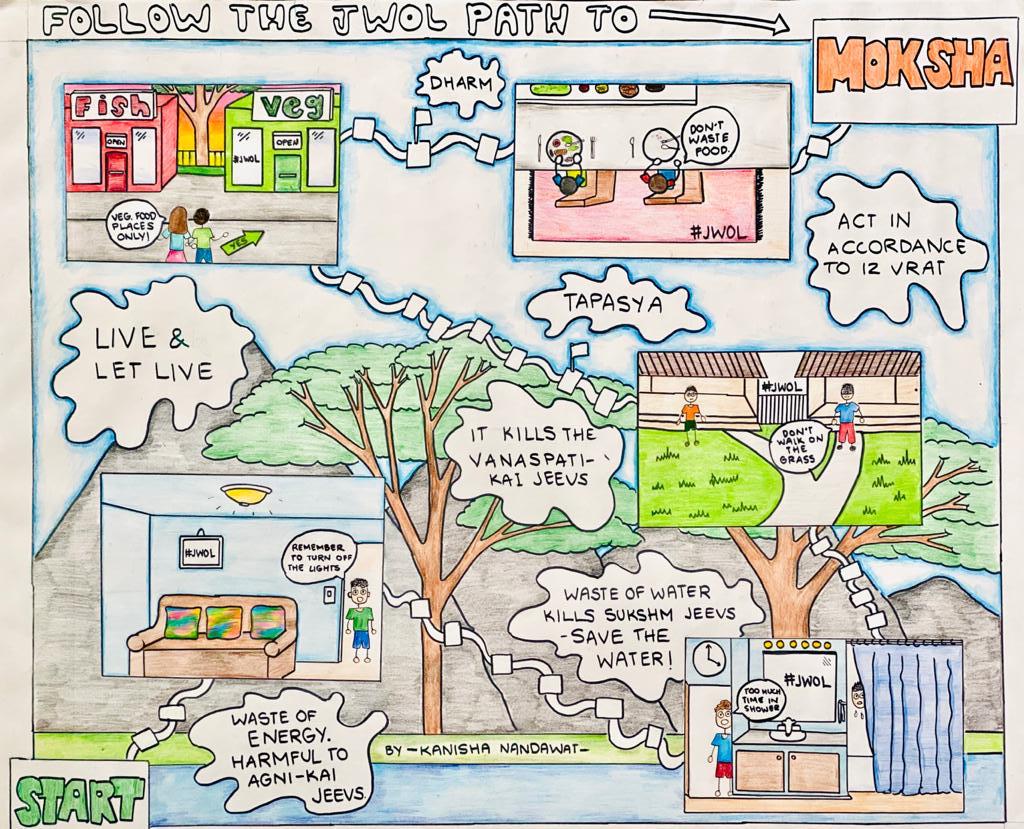 FOLLOW THE JWOL PATH TO
MOKSHA
DHARM
Fish
OPEN
Veg
OPEN
#JWOL
VEG. FOOD
PLACES
ONLY!
YES
DON'T
WASTE
FOOD.
#JWOL
ACT IN
ACCORDANCE
TO 12 VRAT
LIVE &
LET LIVE
TAPASYA
IT KILLS THE
VANASPATI-
KAI JEEVS
#JWOL
DON'T
WALK ON
THE
GRASS
#JWOL
REMEMBER
TO TURN OFF
THE LIGHTS
WASTE OF WATER
KILLS SUKSHM JEEVS
-SAVE THE
WATER!
#JWOL
TOO MUCH
TIME IN
SHOWER
WASTE OF
ENERGY.
HARMFUL TO
AGNI-KAI
JEEVS.
BY -KANISHA NANDAWAT-
START